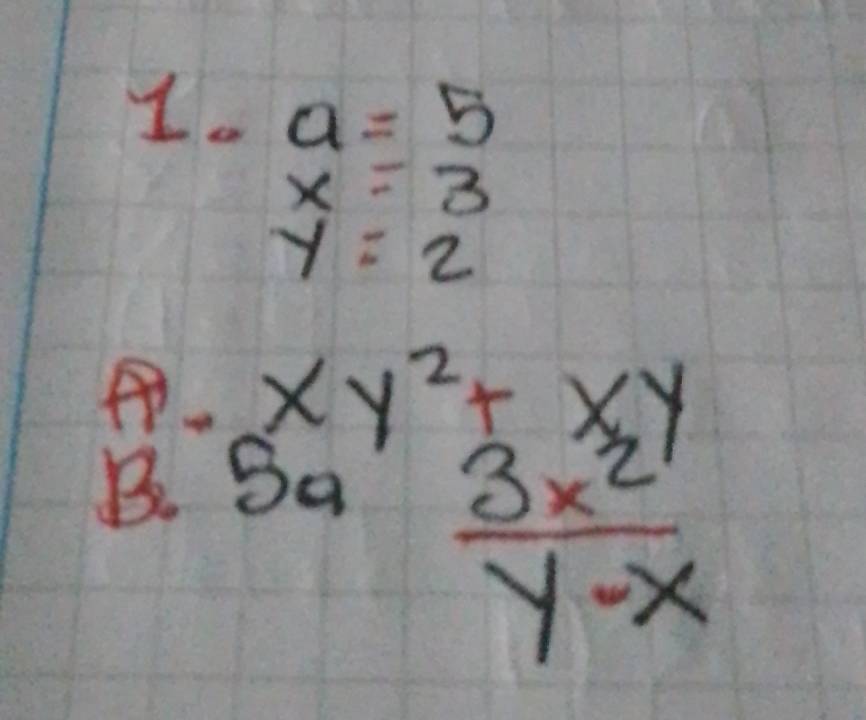 1. a = 5
x = 3
y = 2
A. xy² + xy
B. 5a 3x²
y - x